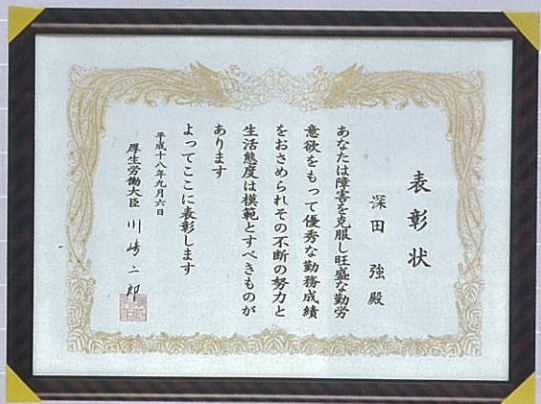 表彰状
深田 強殿
あなたは障害を克服し旺盛な勤労
意欲をもって優秀な勤務成績
をおさめられその不断の努力と
生活態度は模範とすべきものが
あります
よってここに表彰します
平成十八年九月六日
厚生労働大臣 川崎二郎